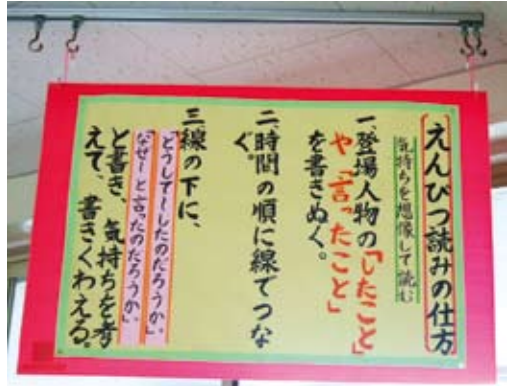 えんぴつ読みの仕方
気持ちを想像して読む
一、登場人物の「したこと」
や「言ったこと」
を書きぬく。
二、時間の順に線でつな
ぐ。
三、線の下に、
「どうして〜したのだろうか、」
「なぜ〜と言ったのだろうか、」
と書き、気持ちを考
えて、書きくわえる。